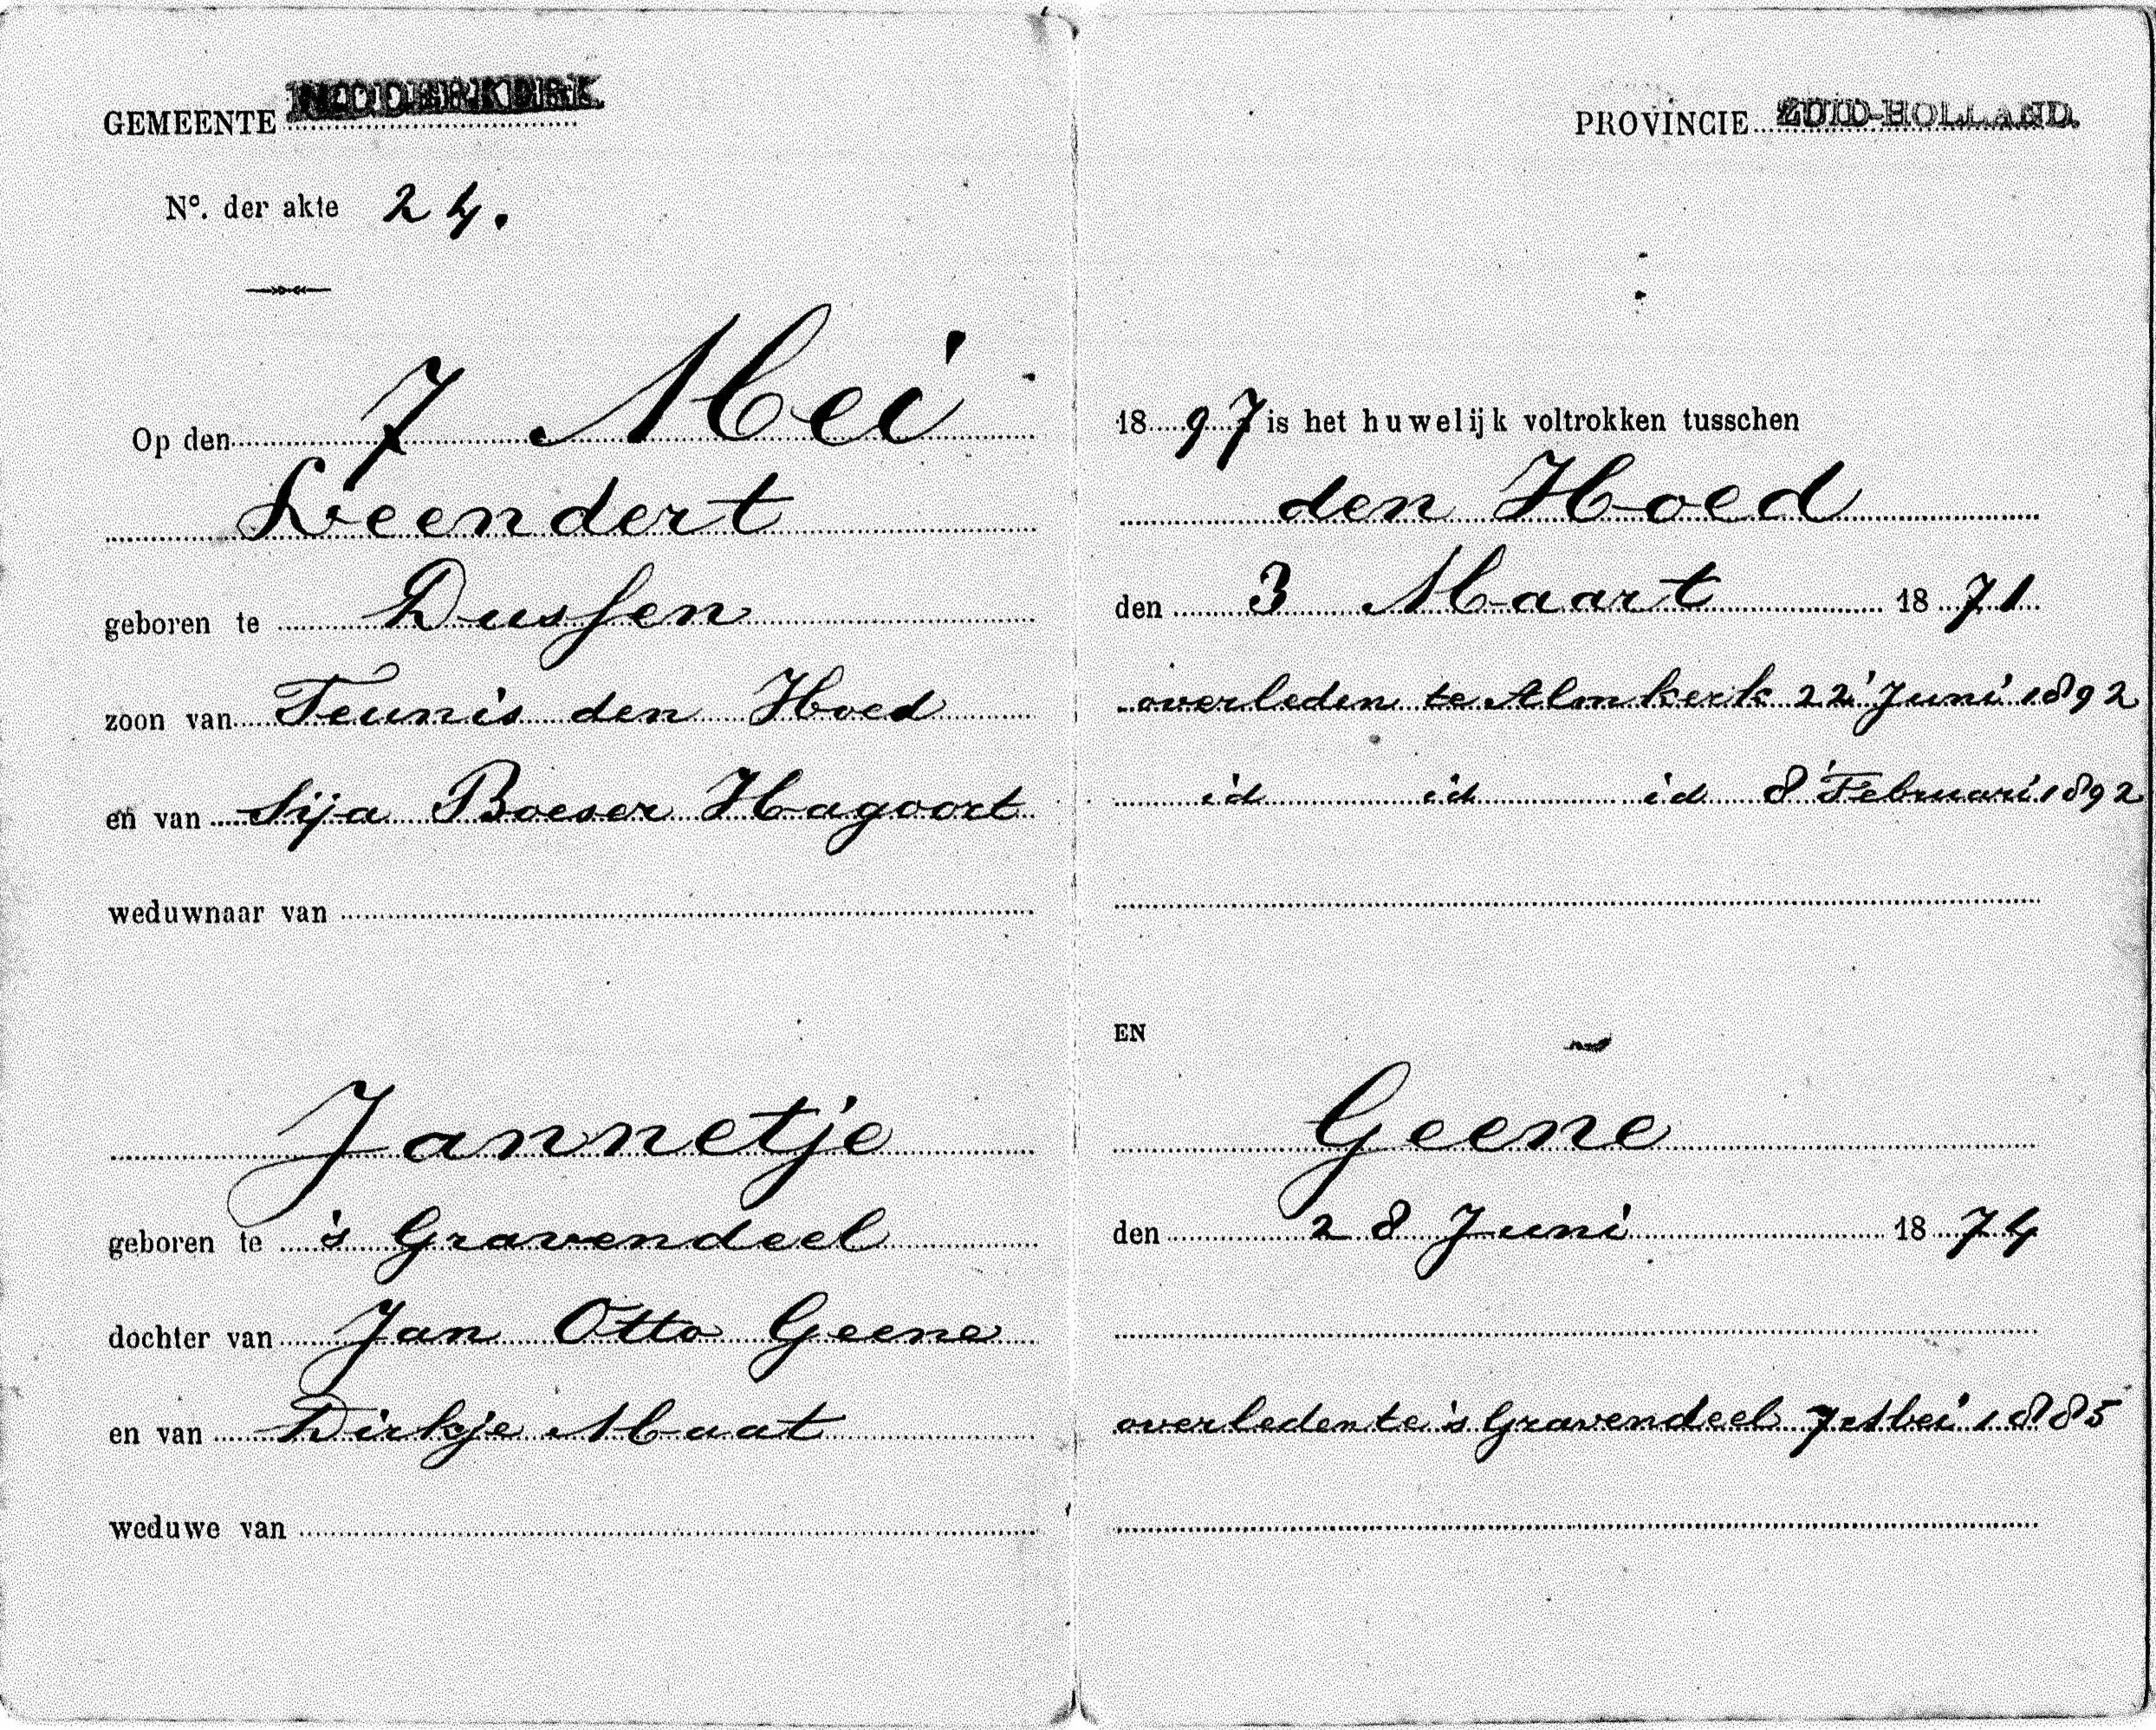 GEMEENTE RIDDERKERK. PROVINCIE ZUID-HOLLAND.
N°. der akte 24.
Op den 7 Mei 1897 is het huwelijk voltrokken tusschen
Leendert den Hoed
geboren te Dussen den 3 Maart 1871
zoon van Teunis den Hoed overleden te Almkerk 22 Juni 1892
en van Sija Boeser Hagoort id id id 8 Februari 1892
weduwnaar van
EN
Jannetje Geene
geboren te 's Gravendeel den 28 Juni 1874
dochter van Jan Otto Geene
en van Dirkje Maat overleden te 's Gravendeel 7 Mei 1885
weduwe van